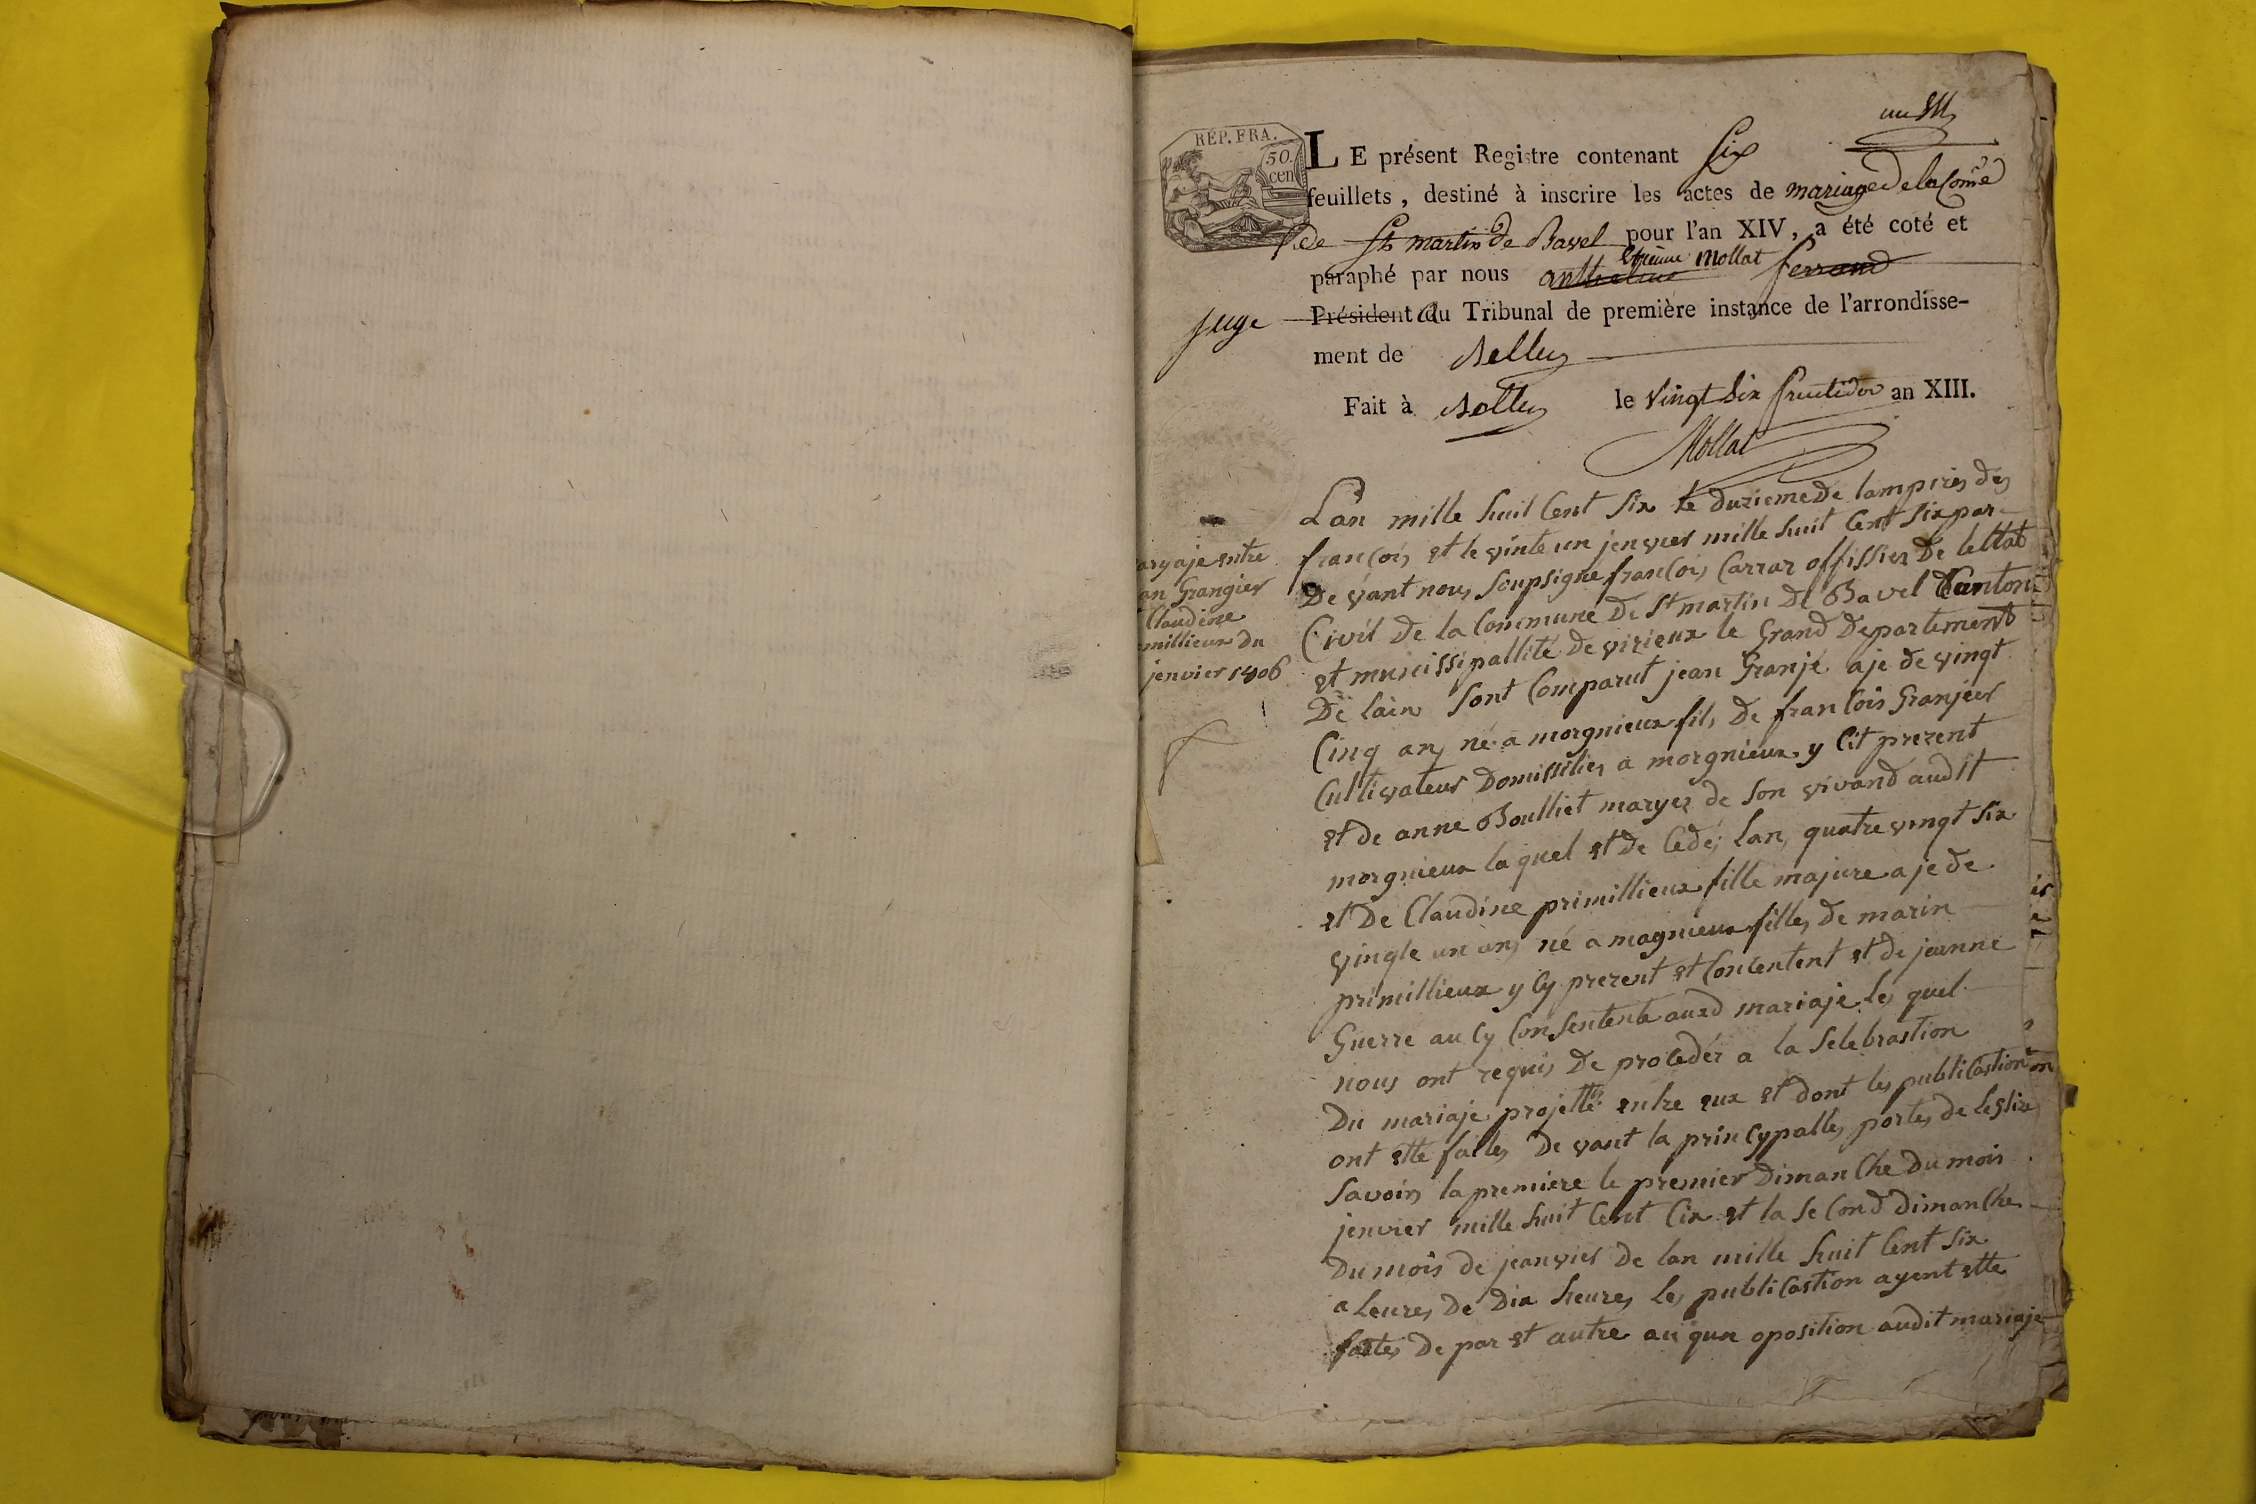 RÉP. FRA.
50.
cen
LE présent Registre contenant Six
feuillets, destiné à inscrire les actes de mariage de la Com̃e
de St martin de Bavel pour l'an XIV, a été coté et
Etienne Mollat
paraphé par nous anthelme ferrand
Juge Président du Tribunal de première instance de l'arrondisse-
ment de Belley
Fait à Belley le Vingt Six fructidor an XIII.
Mollat
aryaje entre
an Grangier
Claudine
millieux du
jenvier 1806
Lan mille huit Cent Six le duzieme de lampires des
francois et le vinte un jenvier mille huit Cent Six par
De vant nous Soupsigne francois Carrar offissier De lettat
Civil De la Commune De St martin De Bavel Canton
et municissipallité De virieux le Grand Departement
De lain Sont Comparut jean Granjé aje de vingt
Cinq ans né a morgnieux fils De francois Granjeer
Cultivateur Domissilies a morgnieux y Cit prezent
et de anne Boulliet maryez de Son vivand audit
morgnieux la quel et De Cedéz Lan quatre vingt Six
et De Claudine primillieux fille majure aje de
vingte un ans né a magnieux filles de marin
primillieux y Cy prezent et Concentent et de jeanne
Guerre au Cy Consentente aud mariaje les quel
nous ont requis De procedér a la Selebrastion
Du mariaje projetté entre eux et dont les publicastion
ont ette faites De vant la princypalles portes de leglize
Savoirs la premiere le premier Dimanche Du mois
jenvier mille huit Cent Cix et la Second dimanche
Du mois de jeanvier De lan mille huit Cent Six
a leures De Dix heures les publicastion ayent ette
faites De par et autre auqun oposition audit mariaje